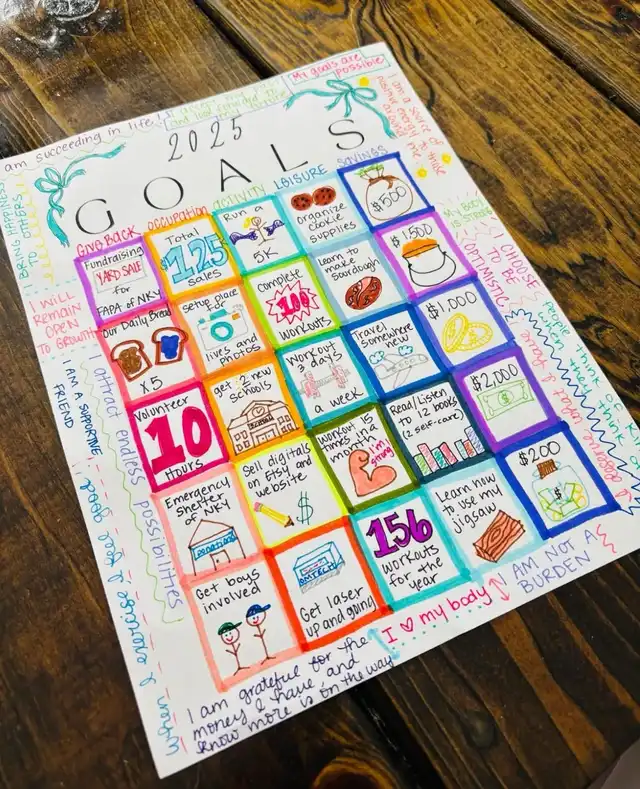 My goals are
possible
am succeeding in life.
I am a source of
positive energy
around
me
2025
GOALS
GIVE BACK
OCCUPATION
ACTIVITY
LEISURE
SAVINGS
Fundraising
YARD SALE
for
FAPA of NKY
Total
$125
sales
Run a
5K
organize
cookie
supplies
$500
Our Daily Bread
x5
Setup place for
lives and
photos
Complete
100
workouts
Learn to
make
sourdough
$1,500
Volunteer
10
Hours
get 2 new
schools
Workout
3 days
a week
Travel somewhere
new
$1,000
Emergency
Shelter
of NKY
DONATIONS
Sell digitals
on Etsy and
website
$
Workout 15
times in a
month
I'm
strong
Read/Listen
to 12 books
(2 self-care)
$2,000
Get boys
involved
OMTECH
Get laser
up and going
156
workouts
for the
year
Learn how
to use my
jigsaw
$200
BRING HAPPINESS
TO OTHERS
I WILL
REMAIN
OPEN
TO GROWTH
I AM A SUPPORTIVE
FRIEND
attract endless
possibilities
When I exercise I feel good
MY BODY
IS STRONG
I CHOOSE
TO BE
OPTIMISTIC
I deserve what I have
I AM NOT A
BURDEN
I ♥ my body
I am grateful for the
money I have and
know more is on the way